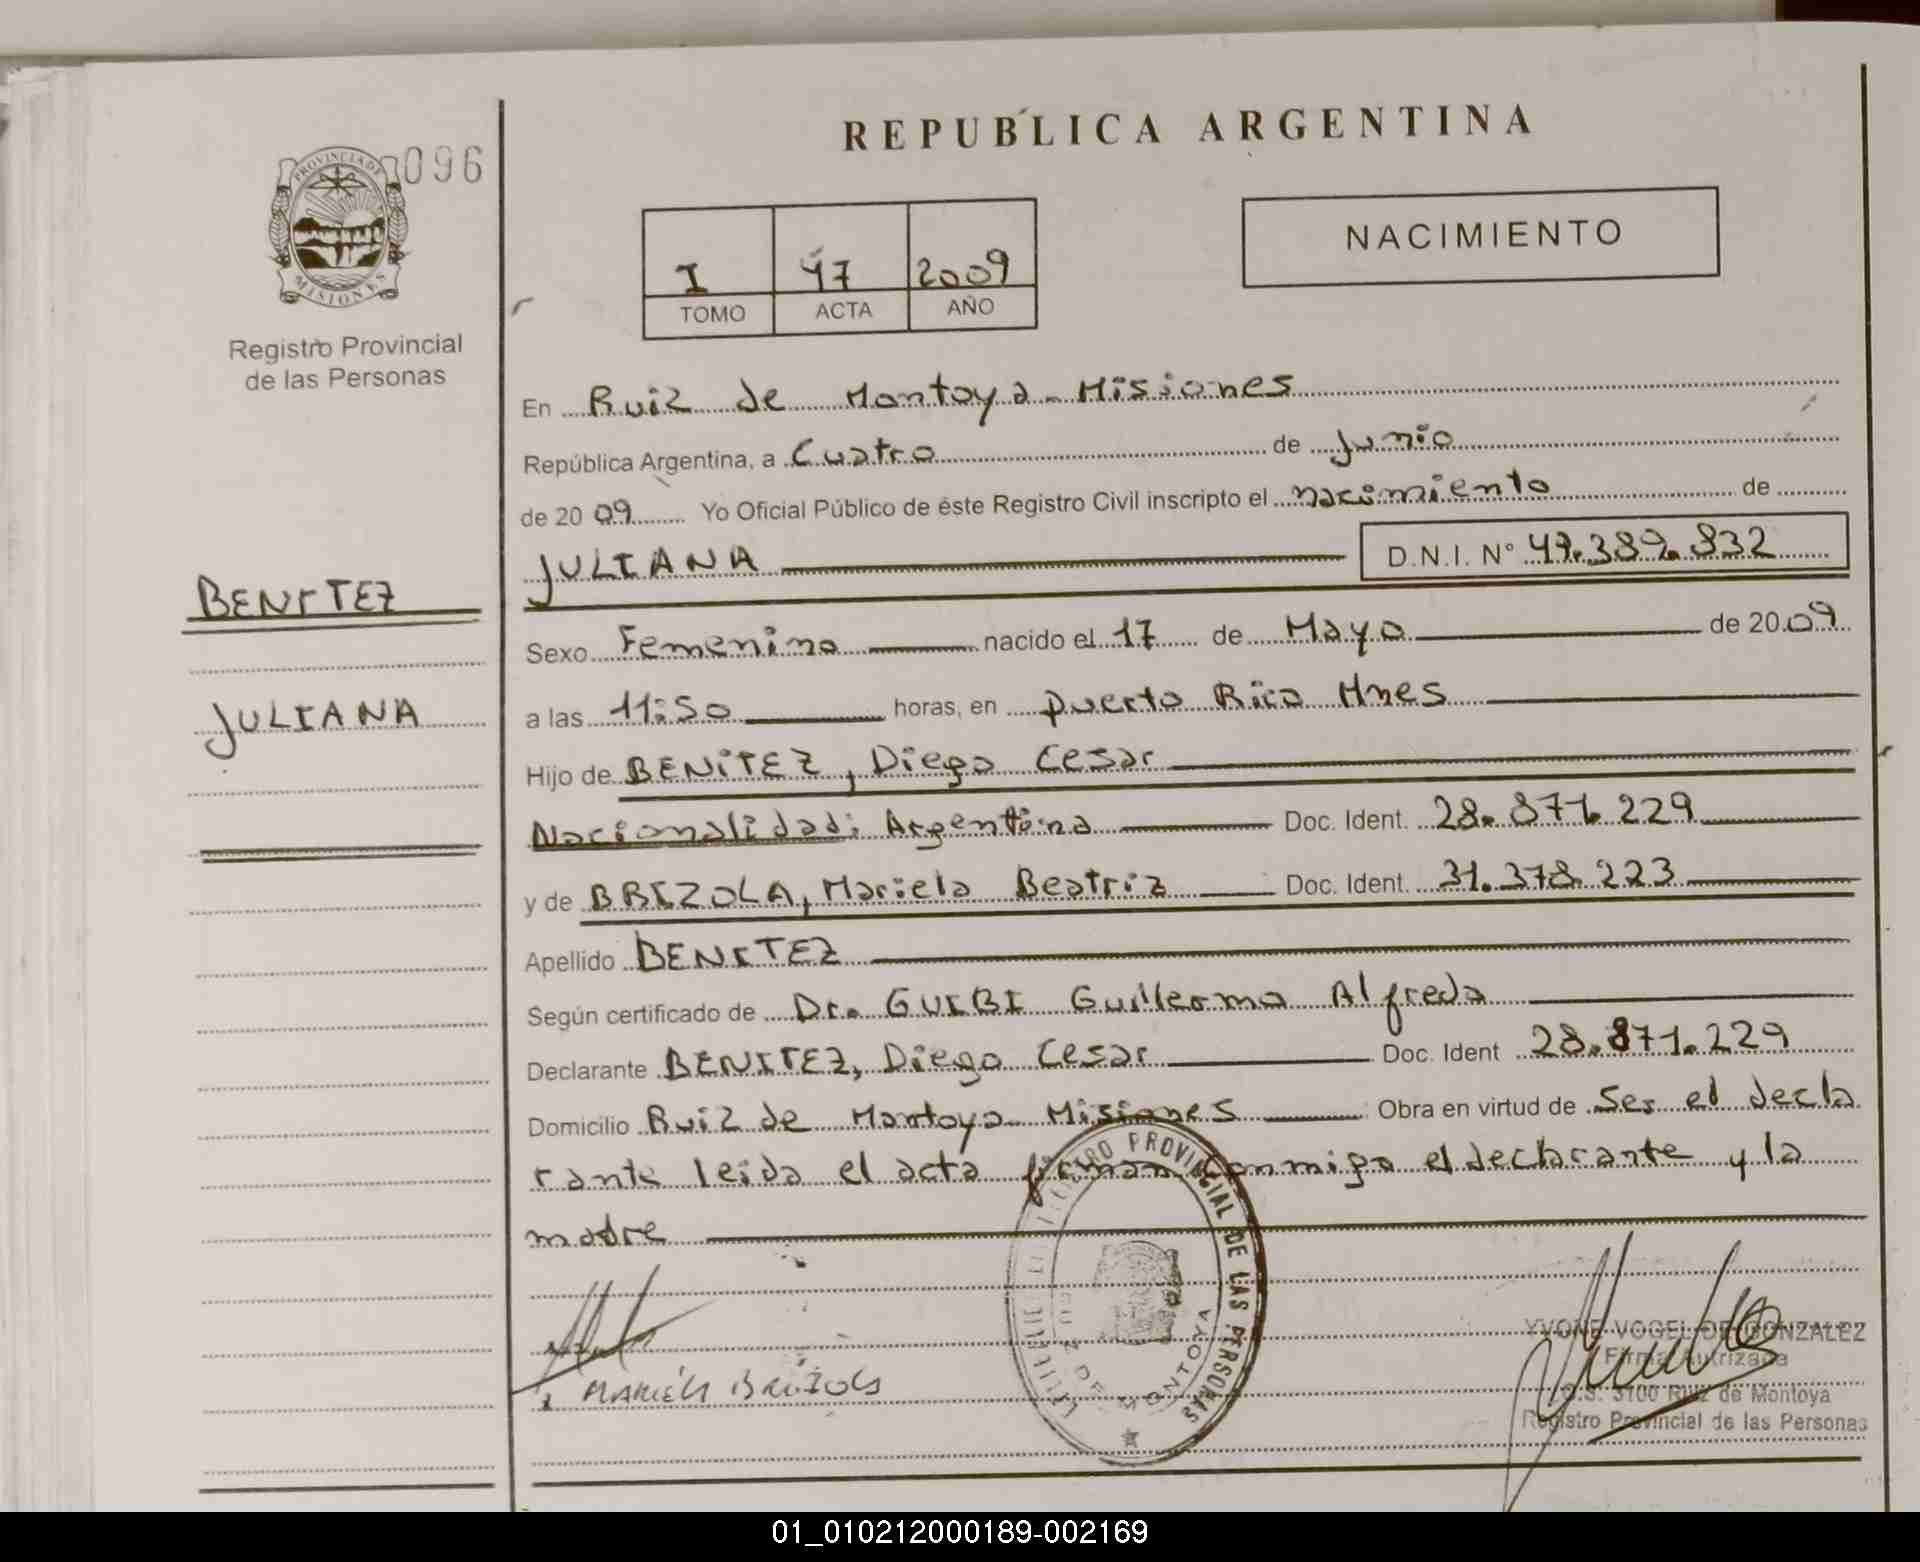 REPUBLICA ARGENTINA
PROVINCIA DE
MISIONES
096
Registro Provincial
de las Personas
I 47 2009
TOMO ACTA AÑO
NACIMIENTO
En Ruiz de Montoya - Misiones
República Argentina, a Cuatro de Junio
de 20 09 Yo Oficial Público de éste Registro Civil inscripto el nacimiento de
JULIANA D.N.I. N° 49.389.832
BENITEZ
Sexo Femenino nacido el 17 de Mayo de 20 09
JULIANA
a las 11:50 horas, en Puerto Rico Mnes
Hijo de BENITEZ, Diego Cesar
Nacionalidad: Argentina Doc. Ident. 28.871.229
y de BRIZOLA, Mariela Beatriz Doc. Ident. 31.378.223
Apellido BENITEZ
Según certificado de Dr. GUIBI Guillermo Alfredo
Declarante BENITEZ, Diego Cesar Doc. Ident 28.871.229
Domicilio Ruiz de Montoya Misiones Obra en virtud de Ser el decla
rante leida el acta firman conmigo el declarante y la
madre
REGISTRO PROVINCIAL DE LAS PERSONAS
DE MONTOYA
YVONE VOGEL DE GONZALEZ
Firma Autrizada
O.S. 3100 Ruiz de Montoya
Registro Provincial de las Personas
MARIELA BRIZOLA
01_010212000189-002169